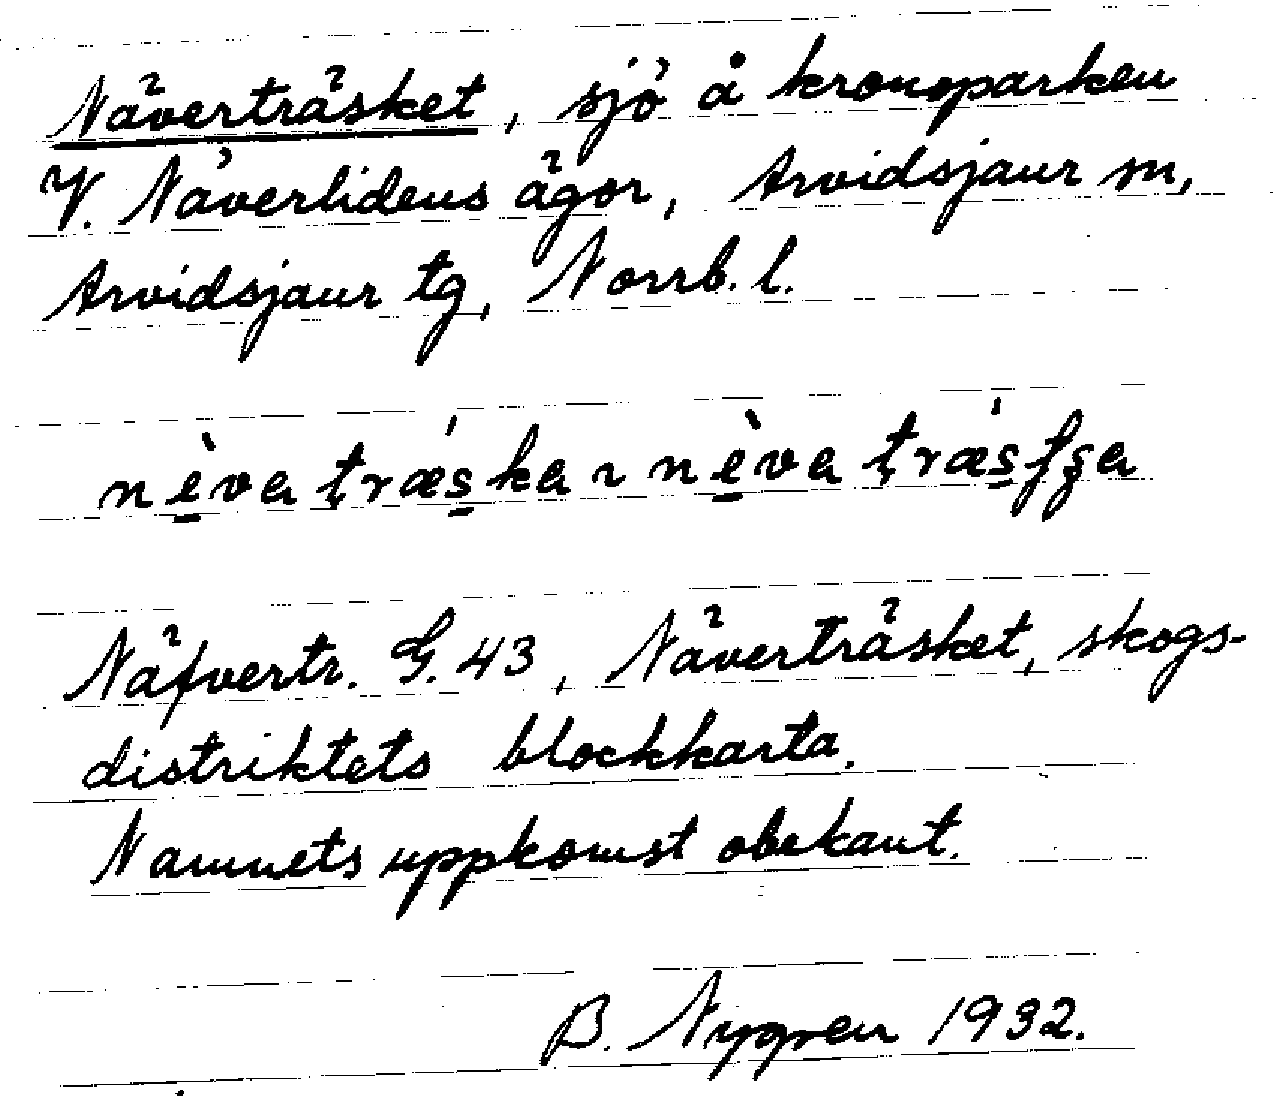 Näverträsket, sjö å kronoparken
V. Näverlidens ägor, Arvidsjaur sn,
Arvidsjaur tg, Norrb. l.
nè̱va trǽs̱ka ~ nè̱va trǽs̱fʂa
Näfvertr. G. 43, Näverträsket, skogs-
distriktets blockkarta.
Namnets uppkomst obekant.
B. Nygren 1932.